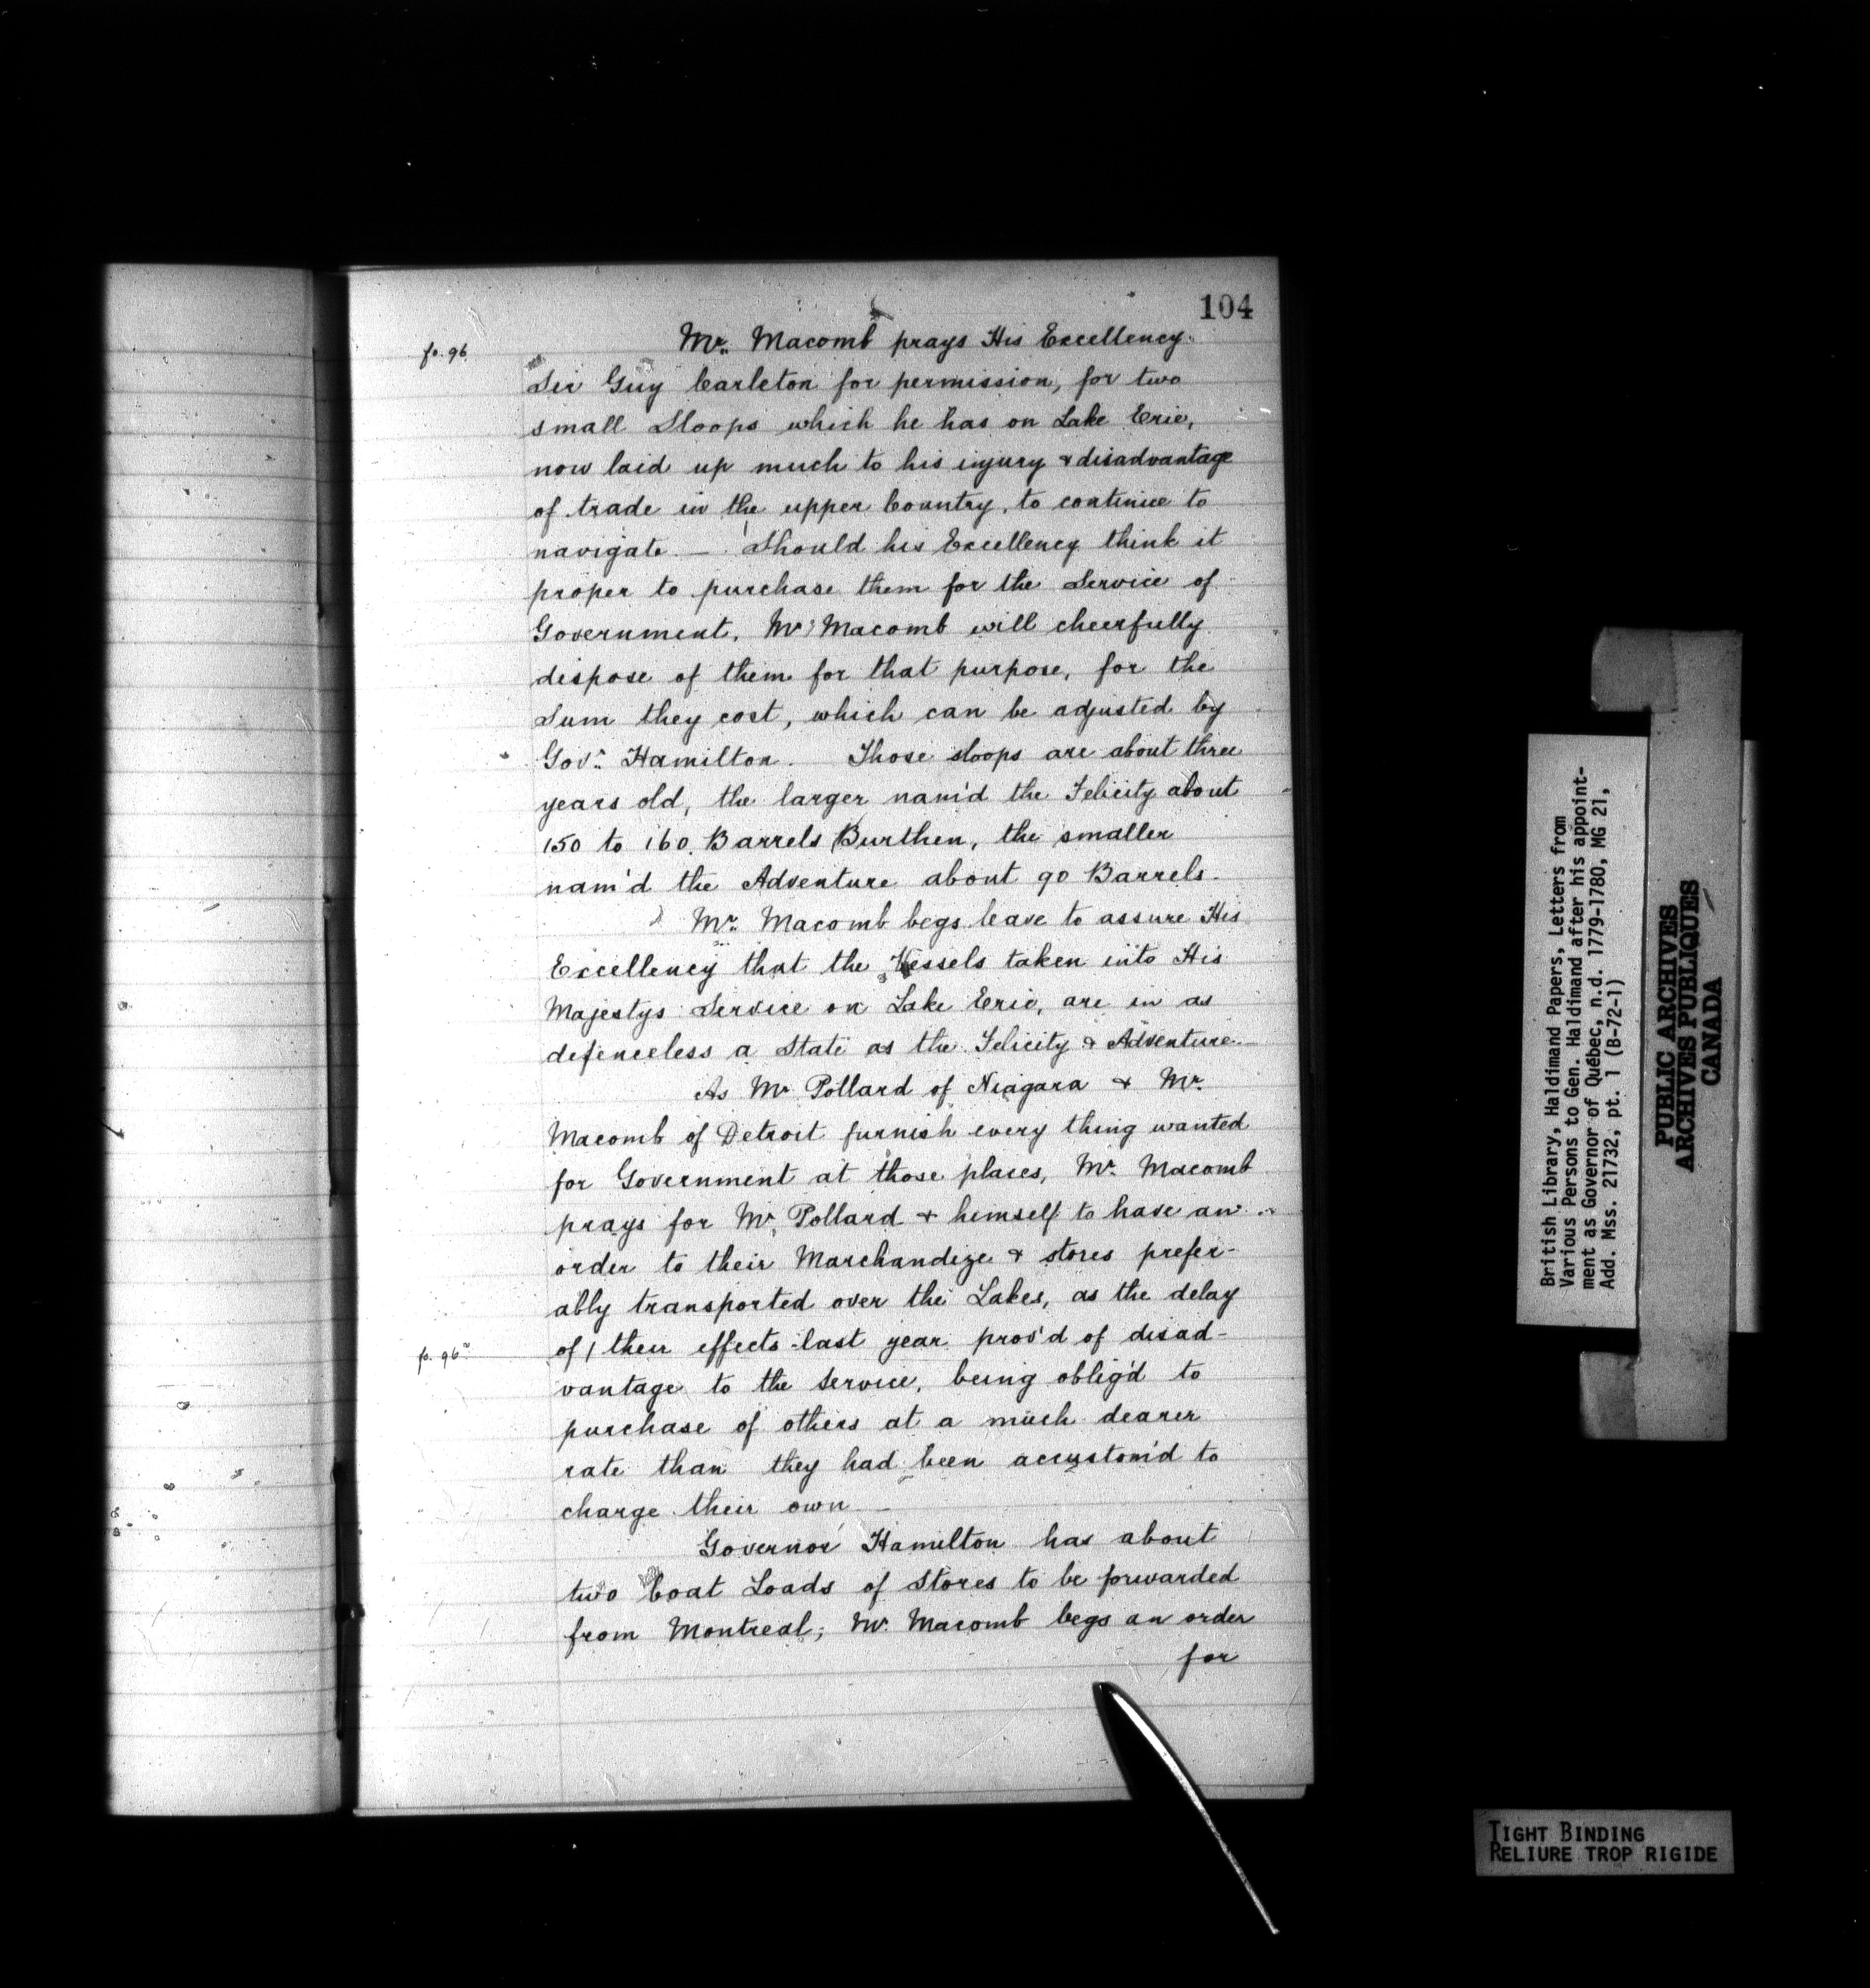 104
fo. 96
Mr. Macomb prays His Excellency
Sir Guy Carleton for permission, for two
small Sloops which he has on Lake Erie,
now laid up much to his injury & disadvantage
of trade in the upper Country, to continue to
navigate. — Should his Excellency think it
proper to purchase them for the Service of
Government, Mr Macomb will cheerfully
dispose of them for that purpose, for the
Sum they cost, which can be adjusted by
Govr. Hamilton. Those sloops are about three
years old, the larger nam'd the Felicity about
150 to 160 Barrels Burthen, the smaller
nam'd the Adventure about 90 Barrels.
Mr. Macomb begs leave to assure His
Excellency that the Vessels taken into His
Majestys Service on Lake Erie, are in as
defenceless a State as the Felicity & Adventure.
As Mr Pollard of Niagara & Mr.
Macomb of Detroit furnish every thing wanted
for Government at those places, Mr. Macomb
prays for Mr. Pollard & himself to have an
order to their Marchandize & stores prefer-
ably transported over the Lakes, as the delay
fo. 96v
of / their effects last year prov'd of disad-
vantage to the service, being oblig'd to
purchase of others at a much dearer
rate than they had been accustom'd to
charge their own —
Governor Hamilton has about
two boat Loads of Stores to be forwarded
from Montreal; Mr. Macomb begs an order
for
British Library, Haldimand Papers, Letters from
Various Persons to Gen. Haldimand after his appoint-
ment as Governor of Québec, n.d. 1779-1780, MG 21,
Add. Mss. 21732, pt. 1 (B-72-1)
PUBLIC ARCHIVES
ARCHIVES PUBLIQUES
CANADA
TIGHT BINDING
RELIURE TROP RIGIDE